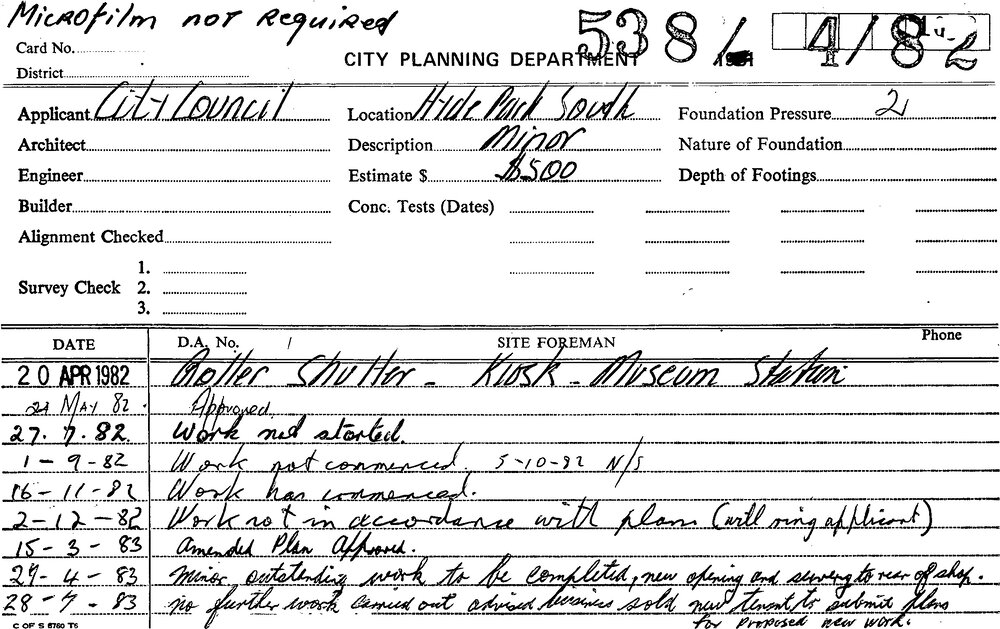 Microfilm not Required
538/ 4/82
Card No.
CITY PLANNING DEPARTMENT
District
Applicant City Council Location Hyde Park South Foundation Pressure 2
Architect Description Minor Nature of Foundation
Engineer Estimate $ $500 Depth of Footings
Builder Conc. Tests (Dates)
Alignment Checked
1.
Survey Check 2.
3.
DATE D.A. No. SITE FOREMAN Phone
20 APR 1982 Roller Shutter - Kiosk - Museum Station
21 May 82. Approved.
27.7.82. Work not started.
1-9-82 Work not commenced. 5-10-82 N/S
16-11-82 Work has commenced.
2-12-82 Work not in accordance with plans (will ring applicant)
15-3-83 Amended Plan Approved.
29-4-83 Minor outstanding work to be completed, new opening and to rear of shop.
28-7-83 no further work carried out advised business sold new tenant to submit plans
for proposed new work.
C OF S 6760 T6